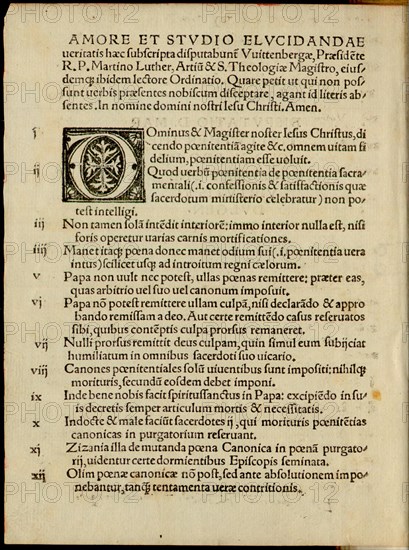 AMORE ET STVDIO ELVCIDANDAE
ueritatis hæc subscripta disputabunt̃ Vuittenbergæ, Præsidẽte
R. P. Martino Luther, Artiũ & S. Theologiæ Magistro, eius/
demq; ibidem lectore Ordinatio. Quare petit ut qui non pos/
sunt uerbis præsentes nobiscum disceptare, agant id literis ab/
sentes. In nomine domini nostri Iesu Christi. Amen.
j DOminus & Magister noster Iesus Christus, di
cendo pœnitentiã agite &c, omnem uitam fi
delium, pœnitentiam esse uoluit.
ij Quod uerbũ pœnitentia de pœnitentia sacra/
mentali (.i. confessionis & satisfactionis quæ
sacerdotum ministerio celebratur) non po/
test intelligi.
iij Non tamen solã intẽdit interiorẽ: immo interior nulla est, nisi
foris operetur uarias carnis mortificationes.
iiij Manet itaq; pœna donec manet odium sui (.i. pœnitentia uera
intus) scilicet usq; ad introitum regni cælorum.
v Papa non uult nec potest, ullas pœnas remittere: præter eas,
quas arbitrio uel suo uel canonum imposuit.
vj Papa nõ potest remittere ullam culpã, nisi declarãdo & appro
bando remissam a deo. Aut certe remittẽdo casus reseruatos
sibi, quibus contẽptis culpa prorsus remaneret.
vij Nulli prorsus remittit deus culpam, quin simul eum subijciat
humiliatum in omnibus sacerdoti suo uicario.
viij Canones pœnitentiales solũ uiuentibus sunt impositi: nihilq;
morituris, secundũ eosdem debet imponi.
ix Inde bene nobis facit spiritussanctus in Papa: excipiẽdo in su/
is decretis semper articulum mortis & necessitatis.
x Indocte & male faciũt sacerdotes ij, qui morituris pœnitẽtias
canonicas in purgatorium reseruant.
xj Zizania illa de mutanda pœna Canonica in pœnã purgato/
rij, uidentur certe dormientibus Episcopis seminata.
xij Olim pœnæ canonicæ nõ post, sed ante absolutionem impo/
nebantur, tanq̃ tentamenta ueræ contritionis.